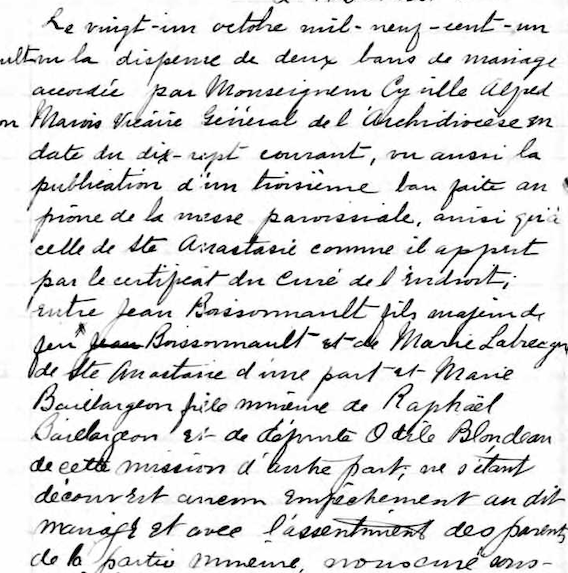 Le vingt-un octobre mil-neuf-cent-un
vu la dispense de deux bans de mariage
accordée par Monseigneur Cyrille Alfred
Marois Vicaire Général de l'Archidiocèse en
date du dix-sept courant, vu aussi la
publication d'un troisième ban faite au
prône de la messe paroissiale, ainsi qu'à
celle de Ste Anastasie comme il appert
par le certificat du Curé de l'endroit;
entre Jean Boissonnault fils majeur de
feu Boissonnault et de Marie Labrecque
de Ste Anastasie d'une part et Marie
Baillargeon fille mineure de Raphaël
Baillargeon et de défunte Odile Blondeau
de cette mission d'autre part, ne s'étant
découvert aucun empêchement au dit
mariage et avec l'assentiment des parents
de la partie mineure, nous curé sous-